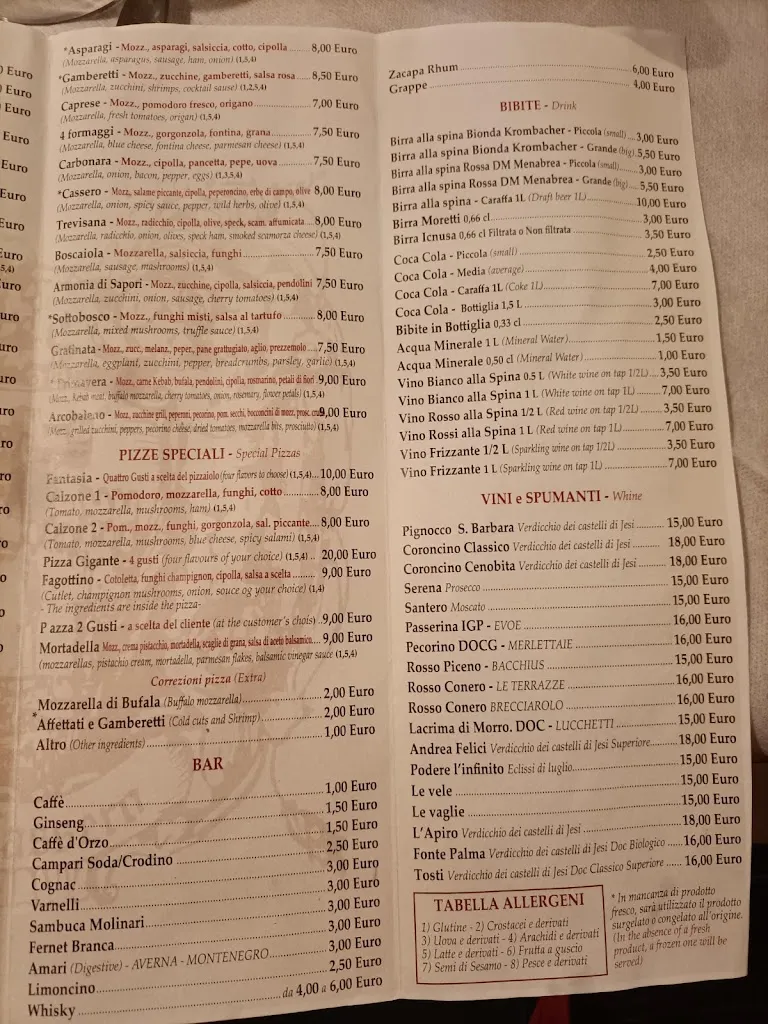 Euro
Euro
Euro
Euro
Euro
Euro
Euro
Euro
*Asparagi - Mozz., asparagi, salsiccia, cotto, cipolla ........ 8,00 Euro
(Mozzarella, asparagus, sausage, ham, onion) (1,5,4)
*Gamberetti - Mozz., zucchine, gamberetti, salsa rosa ........ 8,50 Euro
(Mozzarella, zucchini, shrimps, cocktail sauce) (1,2,5,4)
Caprese - Mozz., pomodoro fresco, origano ........ 7,00 Euro
(Mozzarella, fresh tomatoes, origan) (1,5,4)
4 formaggi - Mozz., gorgonzola, fontina, grana ........ 7,50 Euro
(Mozzarella, blue cheese, fontina cheese, parmesan cheese) (1,5,4)
Carbonara - Mozz., cipolla, pancetta, pepe, uova ........ 7,50 Euro
(Mozzarella, onion, bacon, pepper, eggs) (1,3,5,4)
*Cassero - Mozz, salame piccante, cipolla, peperoncino, erbe di campo, olive 8,00 Euro
(Mozzarella, onion, spicy sauce, pepper, wild herbs, olive) (1,5,4)
Trevisana - Mozz., radicchio, cipolla, olive, speck, scam. affumicata ........ 8,00 Euro
(Mozzarella, radicchio, onion, olives, speck ham, smoked scamorza cheese) (1,5,4)
Boscaiola - Mozzarella, salsiccia, funghi ........ 7,50 Euro
(Mozzarella, sausage, mashrooms) (1,5,4)
Armonia di Sapori - Mozz., zucchine, cipolla, salsiccia, pendolini 7,50 Euro
(Mozzarella, zucchini, onion, sausage, cherry tomatoes) (1,5,4)
*Sottobosco - Mozz., funghi misti, salsa al tartufo ........ 8,00 Euro
(Mozzarella, mixed mushrooms, truffle sauce) (1,5,4)
Gratinata - Mozz., zucc., melanz., peper., pane grattugiato, aglio, prezzemolo ...7,50 Euro
(Mozzarella, eggplant, zucchini, pepper, breadcrumbs, parsley, garlic) (1,5,4)
*Primavera - Mozz., carne Kebab, bufala, pendolini, cipolla, rosmarino, petali di fiori .9,00 Euro
(Mozz., Kebab meat, buffalo mozzarella, cherry tomatoes, onion, rosemary, flower petals) (1,5,4)
Arcobaleno - Mozz., zucchine grill, peperoni, pecorino, pom. secchi, bocconcini di mozz., prosc. crudo 9,00 Euro
(Mozz., grilled zucchini, peppers, pecorino cheese, dried tomatoes, mozzarella bits, prosciutto) (1,5,4)
PIZZE SPECIALI - Special Pizzas
Fantasia - Quattro Gusti a scelta del pizzaiolo (four flavors to choose) (1,5,4) ...10,00 Euro
Calzone 1 - Pomodoro, mozzarella, funghi, cotto ........ 8,00 Euro
(Tomato, mozzarella, mushrooms, ham) (1,5,4)
Calzone 2 - Pom., mozz., funghi, gorgonzola, sal. piccante... 8,00 Euro
(Tomato, mozzarella, mushrooms, blue cheese, spicy salami) (1,5,4)
Pizza Gigante - 4 gusti (four flavours of your choice) (1,5,4) .. 20,00 Euro
Fagottino - Cotoletta, funghi champignon, cipolla, salsa a scelta ........ 9,00 Euro
(Cutlet, champignon mushrooms, onion, souce og your choice) (1,4)
- The ingredients are inside the pizza-
P azza 2 Gusti - a scelta del cliente (at the customer's chois) ..9,00 Euro
Mortadella Mozz., crema pistacchio, mortadella, scaglie di grana, salsa di aceto balsamico.... 9,00 Euro
(mozzarellas, pistachio cream, mortadella, parmesan flakes, balsamic vinegar sauce (1,5,4)
Correzioni pizza (Extra)
Mozzarella di Bufala (Buffalo mozzarella) ........ 2,00 Euro
*Affettati e Gamberetti (Cold cuts and Shrimp) ........ 2,00 Euro
Altro (Other ingredients) ........ 1,00 Euro
BAR
Caffè ........ 1,00 Euro
Ginseng ........ 1,50 Euro
Caffè d'Orzo ........ 1,50 Euro
Campari Soda/Crodino ........ 2,50 Euro
Cognac ........ 3,00 Euro
Varnelli ........ 3,00 Euro
Sambuca Molinari ........ 3,00 Euro
Fernet Branca ........ 3,00 Euro
Amari (Digestive) - AVERNA - MONTENEGRO ........ 3,00 Euro
Limoncino ........ 2,50 Euro
Whisky ........ da 4,00 a 6,00 Euro
Zacapa Rhum ........ 6,00 Euro
Grappe ........ 4,00 Euro
BIBITE - Drink
Birra alla spina Bionda Krombacher - Piccola (small) ....3,00 Euro
Birra alla spina Bionda Krombacher - Grande (big) .5,50 Euro
Birra alla spina Rossa DM Menabrea - Piccola (small) ....3,00 Euro
Birra alla spina Rossa DM Menabrea - Grande (big) .. 5,50 Euro
Birra alla spina - Caraffa 1L (Draft beer 1L) ........ 10,00 Euro
Birra Moretti 0,66 cl ........ 3,00 Euro
Birra Icnusa 0,66 cl Filtrata o Non filtrata ........ 3,50 Euro
Coca Cola - Piccola (small) ........ 2,50 Euro
Coca Cola - Media (average) ........ 4,00 Euro
Coca Cola - Caraffa 1L (Coke 1L) ........ 7,00 Euro
Coca Cola - Bottiglia 1,5 L ........ 3,00 Euro
Bibite in Bottiglia 0,33 cl ........ 2,50 Euro
Acqua Minerale 1 L (Mineral Water) ........ 1,50 Euro
Acqua Minerale 0,50 cl (Mineral Water) ........ 1,00 Euro
Vino Bianco alla Spina 0.5 L (White wine on tap 1/2L) ....3,50 Euro
Vino Bianco alla Spina 1 L (White wine on tap 1L) ........ 7,00 Euro
Vino Rosso alla Spina 1/2 L (Red wine on tap 1/2L) ........ 3,50 Euro
Vino Rossi alla Spina 1 L (Red wine on tap 1L) ........ 7,00 Euro
Vino Frizzante 1/2 L (Sparkling wine on tap 1/2L) ........ 3,50 Euro
Vino Frizzante 1 L (Sparkling wine on tap 1L) ........ 7,00 Euro
VINI e SPUMANTI - Whine
Pignocco S. Barbara Verdicchio dei castelli di Jesi ........ 15,00 Euro
Coroncino Classico Verdicchio dei castelli di Jesi ........ 18,00 Euro
Coroncino Cenobita Verdicchio dei castelli di Jesi ........ 18,00 Euro
Serena Prosecco ........ 15,00 Euro
Santero Moscato ........ 15,00 Euro
Passerina IGP - EVOE ........ 16,00 Euro
Pecorino DOCG - MERLETTAIE ........ 16,00 Euro
Rosso Piceno - BACCHIUS ........ 15,00 Euro
Rosso Conero - LE TERRAZZE ........ 16,00 Euro
Rosso Conero BRECCIAROLO ........ 16,00 Euro
Lacrima di Morro. DOC - LUCCHETTI ........ 15,00 Euro
Andrea Felici Verdicchio dei castelli di Jesi Superiore ........ 18,00 Euro
Podere l'infinito Eclissi di luglio ........ 15,00 Euro
Le vele ........ 15,00 Euro
Le vaglie ........ 15,00 Euro
L'Apiro Verdicchio dei castelli di Jesi ........ 18,00 Euro
Fonte Palma Verdicchio dei castelli di Jesi Doc Biologico ...... 16,00 Euro
Tosti Verdicchio dei castelli di Jesi Doc Classico Superiore ..... 16,00 Euro
TABELLA ALLERGENI
1) Glutine - 2) Crostacei e derivati
3) Uova e derivati - 4) Arachidi e derivati
5) Latte e derivati - 6) Frutta a guscio
7) Semi di Sesamo - 8) Pesce e derivati
* In mancanza di prodotto
fresco, sarà utilizzato il prodotto
surgelato o congelato all'origine.
(In the absence of a fresh
product, a frozen one will be
served)